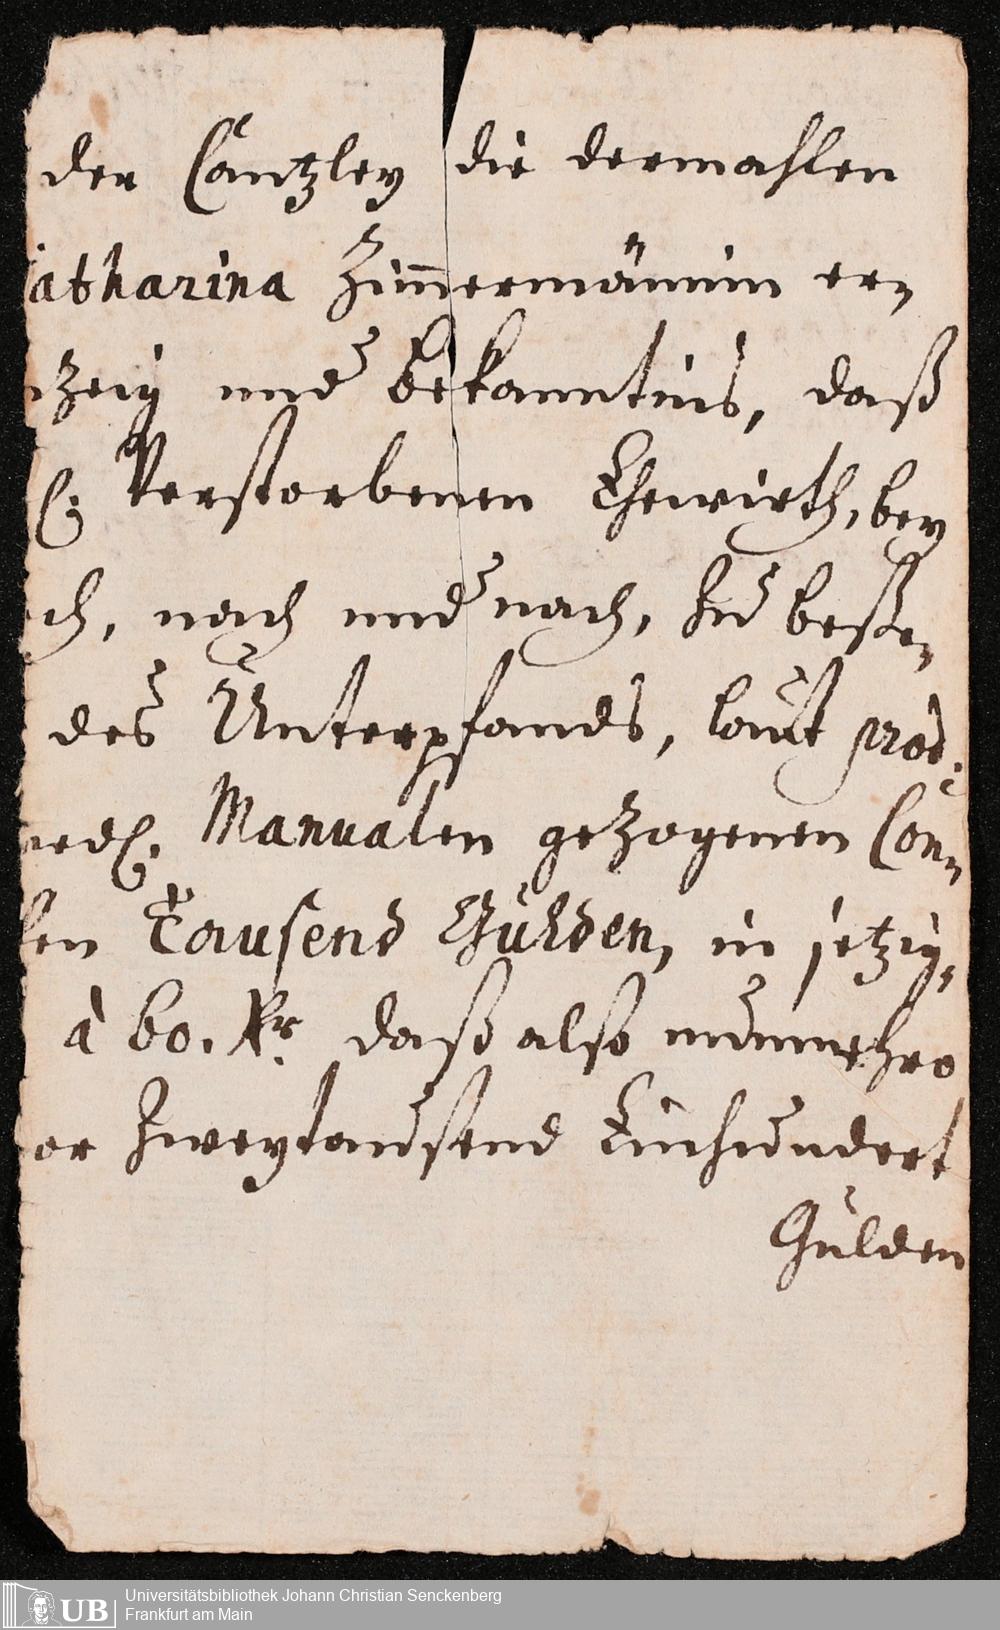 der Cantzley die dermahlen
atharina Zim̅ermännin er-
zeig und bekanntnis, daß
l: Verstorbenen Ehewirth, bey
ch, nach und nach, Zu beße-
des Unterpfands, laut prod:
Manualen gezogenen Con-
len Tausend Gülden, in jetzig-
à 60. Xr. daß also nunmehro
or Zweytausend Einhundert
Gülden
UB
Universitätsbibliothek Johann Christian Senckenberg
Frankfurt am Main